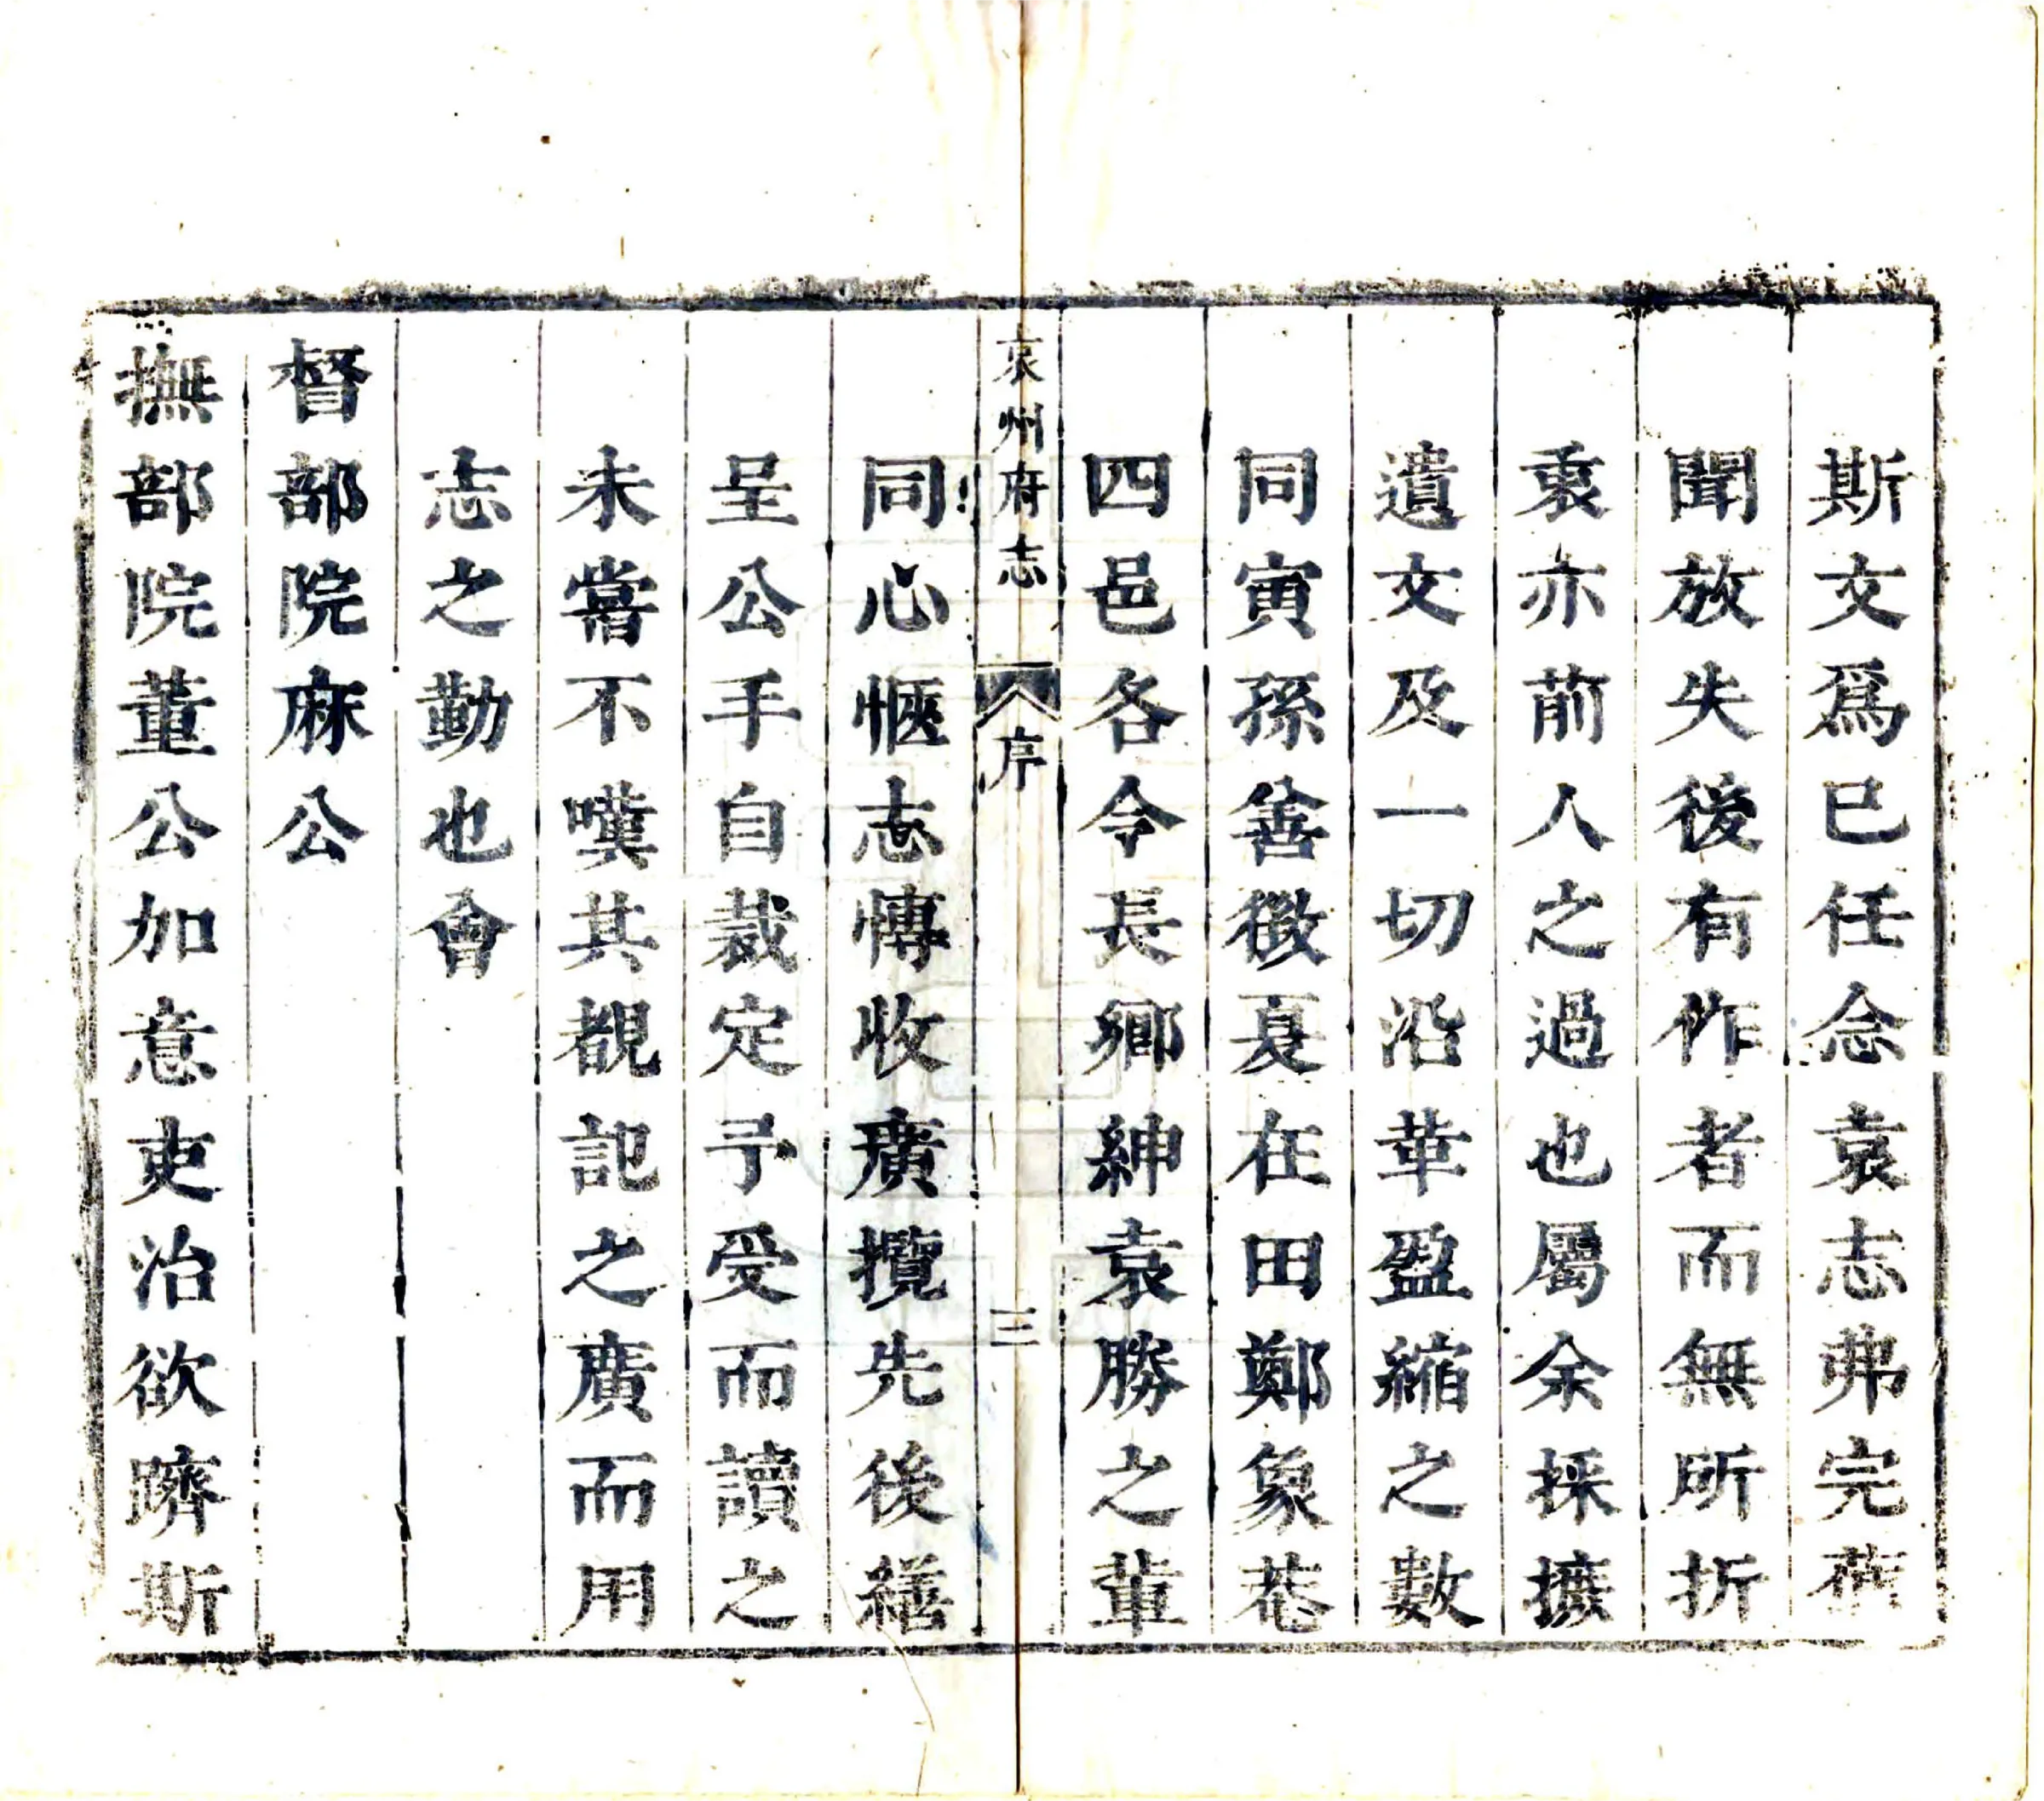 斯文爲已任念袁志弗完舊
聞放失後有作者而無所折
衷亦前人之過也屬余採摭
遺文及一切沿革盈縮之數
同寅孫善徵夏在田鄭象菴
四邑各令長鄉紳袁勝之輩
袁州府志 序 三
同心愜志慱收廣攬先後繕
呈公手自裁定予受而讀之
未嘗不嘆其覩記之廣而用
志之勤也會
督部院麻公
撫部院董公加意吏治欲躋斯